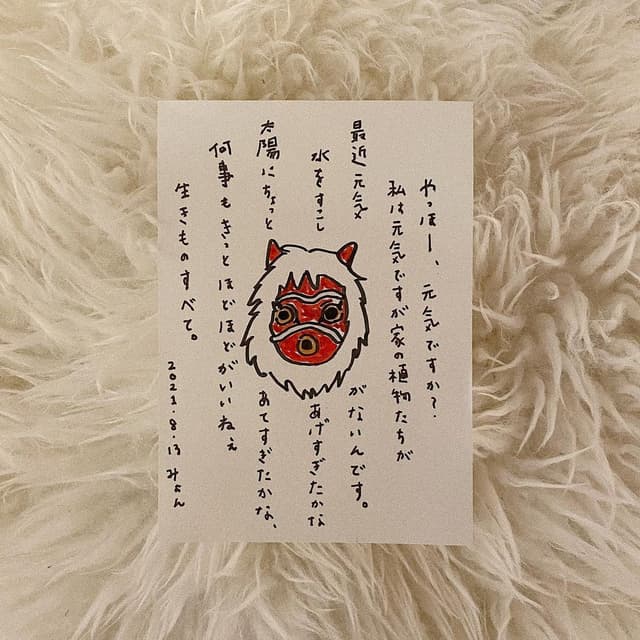 やっほー、元気ですか?
私は元気ですが家の植物たちが
最近元気がないんです。
水をすこしあげすぎたかな
太陽にちょっとあてすぎたかな、
何事もきっとほどほどがいいねぇ
生きものすべて。
2021.8.13 みょん